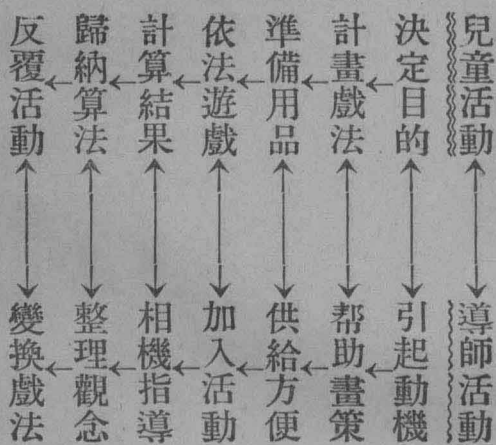 兒童活動
導師活動
決定目的
引起動機
計畫戲法
帮助畫策
準備用品
供給方便
依法遊戲
加入活動
計算結果
相機指導
歸納算法
整理觀念
反覆活動
變換戲法